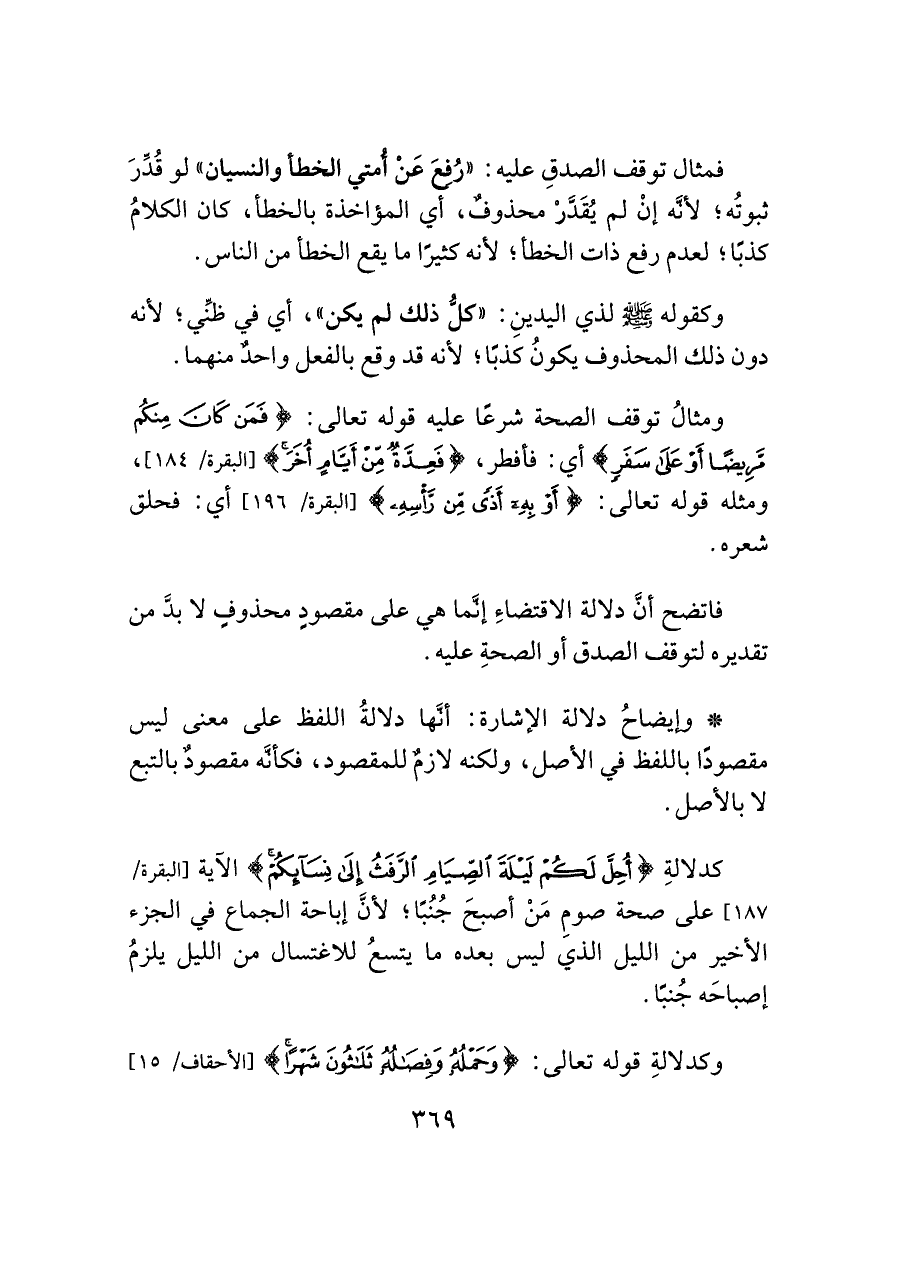 فمثال توقف الصدقِ عليه: «رُفِعَ عَنْ أُمتي الخطأ والنسيان» لو قُدِّرَ
ثبوتُه؛ لأنَّه إنْ لم يُقَدَّرْ محذوفٌ، أي المؤاخذة بالخطأ، كان الكلامُ
كذبًا؛ لعدم رفع ذات الخطأ؛ لأنه كثيرًا ما يقع الخطأ من الناس.
وكقوله ﷺ لذي اليدينِ: «كلُّ ذلك لم يكن»، أي في ظنِّي؛ لأنه
دون ذلك المحذوف يكونُ كذبًا؛ لأنه قد وقع بالفعل واحدٌ منهما.
ومثالُ توقف الصحة شرعًا عليه قوله تعالى: ﴿ فَمَن كَانَ مِنكُم
مَّرِيضًا أَوْ عَلَىٰ سَفَرٍ ﴾ أي: فأفطر، ﴿ فَعِدَّةٌ مِّنْ أَيَّامٍ أُخَرَۚ ﴾ [البقرة/ ١٨٤]،
ومثله قوله تعالى: ﴿ أَوْ بِهِۦٓ أَذًى مِّن رَّأْسِهِۦ ﴾ [البقرة/ ١٩٦] أي: فحلق
شعره.
فاتضح أنَّ دلالة الاقتضاءِ إنَّما هي على مقصودٍ محذوفٍ لا بدَّ من
تقديره لتوقف الصدق أو الصحةِ عليه.
* وإيضاحُ دلالة الإشارة: أنَّها دلالةُ اللفظ على معنى ليس
مقصودًا باللفظ في الأصل، ولكنه لازمٌ للمقصود، فكأنَّه مقصودٌ بالتبع
لا بالأصل.
كدلالةِ ﴿ أُحِلَّ لَكُمْ لَيْلَةَ ٱلصِّيَامِ ٱلرَّفَثُ إِلَىٰ نِسَآئِكُمْۚ ﴾ الآية [البقرة/
١٨٧] على صحة صومِ مَنْ أصبحَ جُنُبًا؛ لأنَّ إباحة الجماع في الجزء
الأخير من الليل الذي ليس بعده ما يتسعُ للاغتسال من الليل يلزمُ
إصباحَه جُنبًا.
وكدلالةِ قوله تعالى: ﴿ وَحَمْلُهُۥ وَفِصَٰلُهُۥ ثَلَٰثُونَ شَهْرًاۚ ﴾ [الأحقاف/ ١٥]
٣٦٩